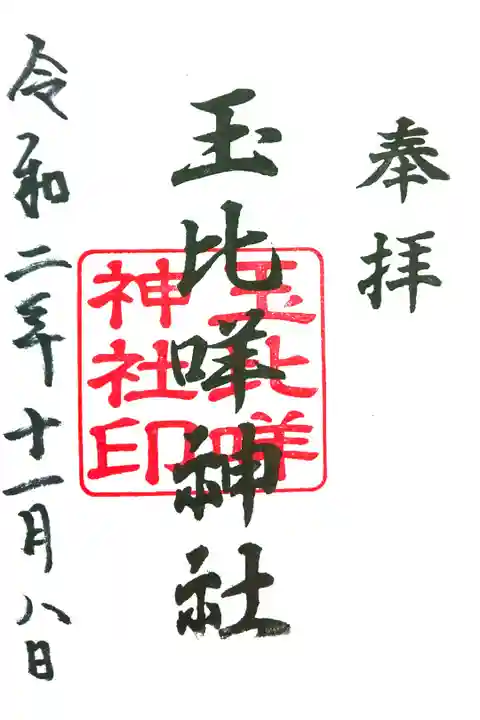 奉拝
玉比咩神社
玉比咩
神社印
令和二年十一月八日